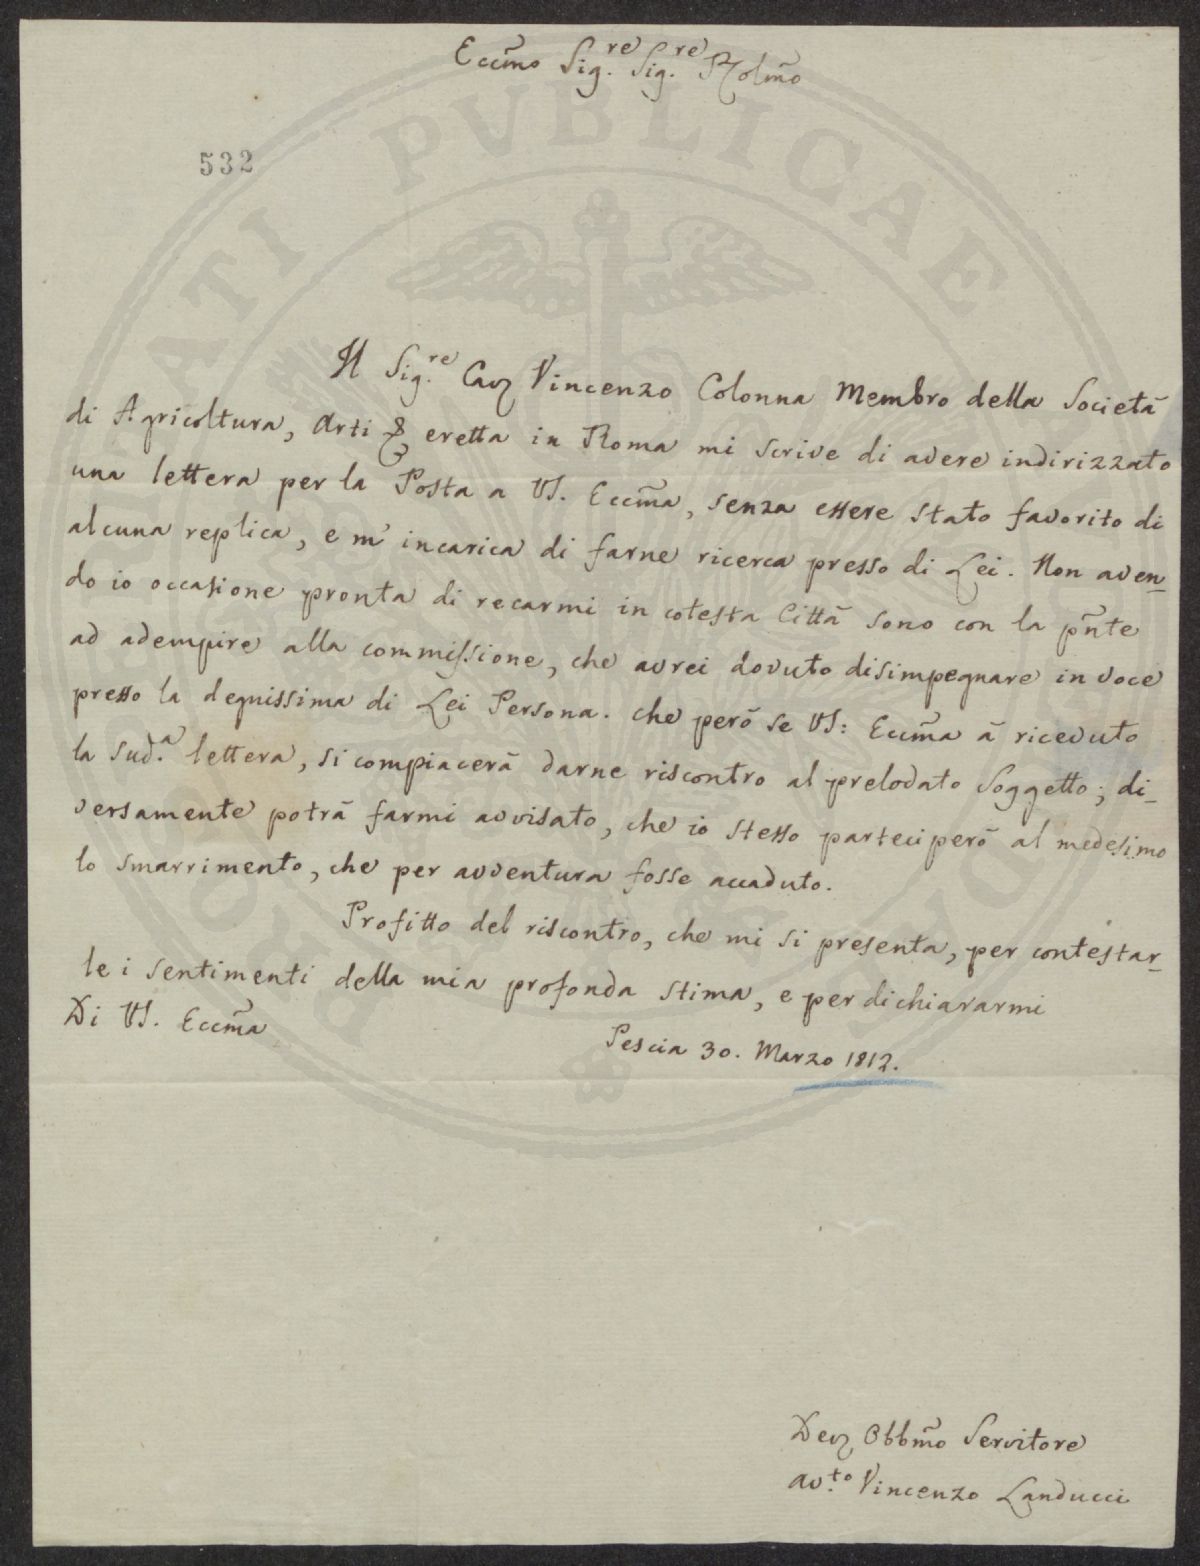 Eccmo Sig.re Sig.re Pro͞lmo
532
Il Sig.re Cav. Vincenzo Colonna Membro della Società
di Agricoltura, Arti & eretta in Roma mi scrive di avere indirizzato
una lettera per la Posta a VS. Eccma, senza essere stato favorito di
alcuna replica, e m'incarica di farne ricerca presso di Lei. Non aven-
do io occasione pronta di recarmi in cotesta Città sono con la pnte
ad adempire alla commissione, che avrei dovuto disimpegnare in voce
presso la degnissima di Lei Persona. Che però se VS: Eccma à riceduto
la sud.a lettera, si compiacerà darne riscontro al prelodato Soggetto; di-
versamente potrà farmi avvisato, che io stesso parteciperò al medesimo
lo smarrimento, che per avventura fosse accaduto.
Profitto del riscontro, che mi si presenta, per contestar-
le i sentimenti della mia profonda stima, e per dichiararmi
Di VS. Eccma
Pescia 30. Marzo 1812.
Dev. Obbmo Servitore
Av.to Vincenzo Landucci